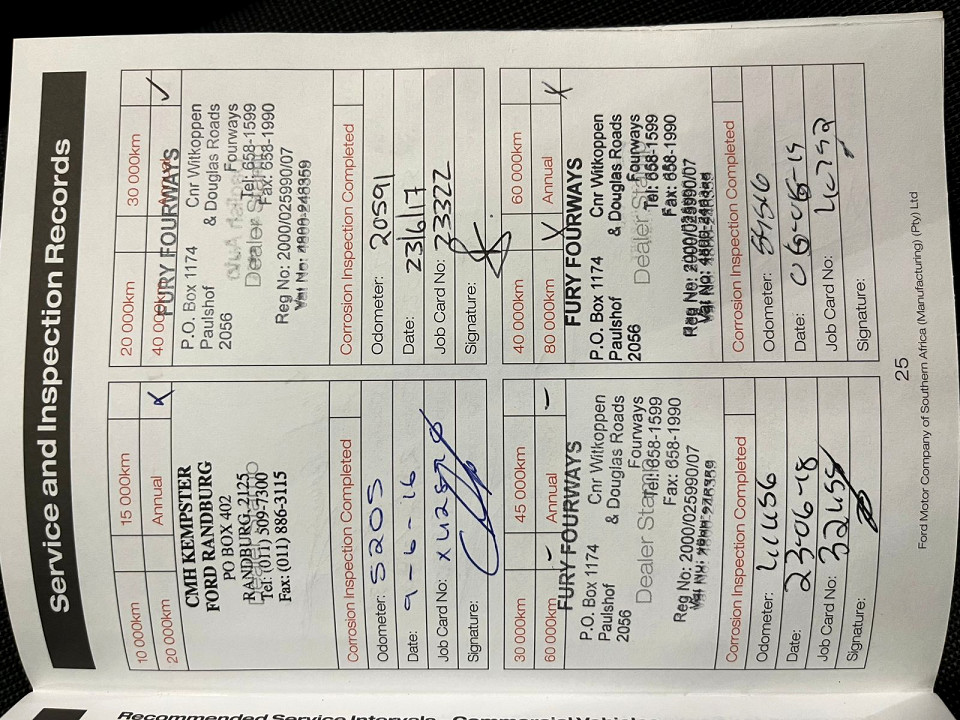 Service and Inspection Records
10 000km 15 000km
20 000km Annual X
CMH KEMPSTER
FORD RANDBURG
PO BOX 402
RANDBURG, 2125
Tel: (011) 309-7300
Fax: (011) 886-3115
Corrosion Inspection Completed
Odometer: 5205
Date: 9-6-16
Job Card No:
Signature:
20 000km 30 000km
40 000km Annual ✓
FURY FOURWAYS
P.O. Box 1174 Cnr Witkoppen
Paulshof & Douglas Roads
2056 Fourways
Dealer Stamp Tel: 658-1599
Fax: 658-1990
Reg No: 2000/025990/07
Vat No: 4800-248359
Corrosion Inspection Completed
Odometer: 20591
Date: 23/6/17
Job Card No: 233222
Signature:
30 000km 45 000km
60 000km - Annual -
FURY FOURWAYS
P.O. Box 1174 Cnr Witkoppen
Paulshof & Douglas Roads
2056 Fourways
Dealer Stamp Tel: 658-1599
Fax: 658-1990
Reg No: 2000/025990/07
Corrosion Inspection Completed
Odometer:
Date: 23-06-18
Job Card No:
Signature:
40 000km 60 000km
80 000km X Annual X
FURY FOURWAYS
P.O. Box 1174 Cnr Witkoppen
Paulshof & Douglas Roads
2056 Fourways
Dealer Stamp Tel: 658-1599
Fax: 658-1990
Reg No: 2000/025990/07
Corrosion Inspection Completed
Odometer:
Date:
Job Card No:
Signature:
25
Ford Motor Company of Southern Africa (Manufacturing) (Pty) Ltd
Recommended Service Intervals - Commercial